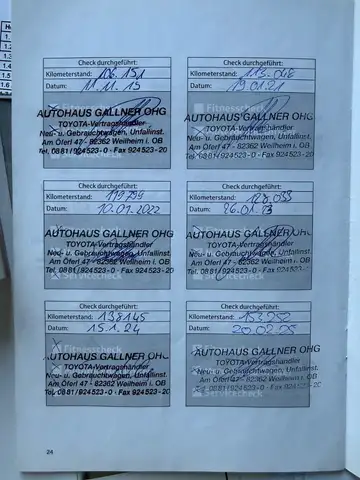 Check durchgeführt:
Kilometerstand: 106.151
Datum: 11.11.15
Fitnesscheck
AUTOHAUS GALLNER OHG
TOYOTA-Vertragshändler
Neu- u. Gebrauchtwagen, Unfallinst.
Am Öferl 47 - 82362 Weilheim i. OB
Tel. 0881/924523-0 · Fax 924523-20
Check durchgeführt:
Kilometerstand: 113.048
Datum: 19.01.21
Fitnesscheck
AUTOHAUS GALLNER OHG
TOYOTA-Vertragshändler
Neu- u. Gebrauchtwagen, Unfallinst.
Am Öferl 47 - 82362 Weilheim i. OB
Tel. 0881/924523-0 · Fax 924523-20
Check durchgeführt:
Kilometerstand: 119799
Datum: 10.01.2022
AUTOHAUS GALLNER OHG
TOYOTA-Vertragshändler
Neu- u. Gebrauchtwagen, Unfallinst.
Am Öferl 47 - 82362 Weilheim i. OB
Tel. 0881/924523-0 · Fax 924523-20
Check durchgeführt:
Kilometerstand:
Datum: 26.01.
AUTOHAUS GALLNER OHG
TOYOTA-Vertragshändler
Neu- u. Gebrauchtwagen, Unfallinst.
Am Öferl 47 - 82362 Weilheim i. OB
Tel. 0881/924523-0 · Fax 924523-20
Check durchgeführt:
Kilometerstand: 138145
Datum: 15.1.24
Fitnesscheck
AUTOHAUS GALLNER OHG
TOYOTA-Vertragshändler
Neu- u. Gebrauchtwagen, Unfallinst.
Am Öferl 47 - 82362 Weilheim i. OB
Tel. 0881/924523-0 · Fax 924523-20
Servicecheck
Check durchgeführt:
Kilometerstand: 153.252
Datum: 20.02.25
AUTOHAUS GALLNER OHG
TOYOTA-Vertragshändler
Neu- u. Gebrauchtwagen, Unfallinst.
Am Öferl 47 - 82362 Weilheim i. OB
Tel. 0881/924523-0 · Fax 924523-20
Servicecheck
24